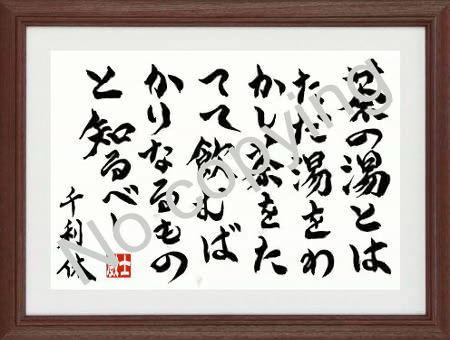 茶の湯とは
ただ湯をわ
かし茶をた
てて飲むば
かりなるもの
と知るべし
千利休
No copying